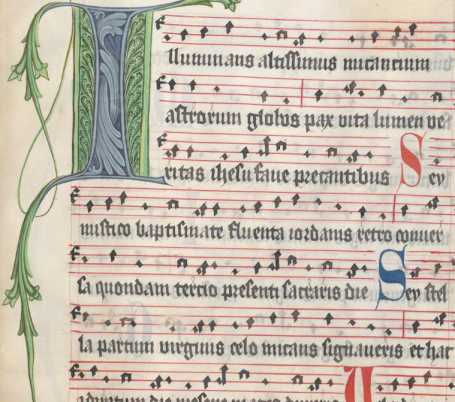 Illuminans altissimus micantium
astrorum globos pax vita lumen ve
ritas ihesu fave precantibus Sey
mistico baptismate fluenta iordanis retro conver
sa quondam tercio presenti sacraris die Sey stel
la partum virginis celo micans signaveris et hac